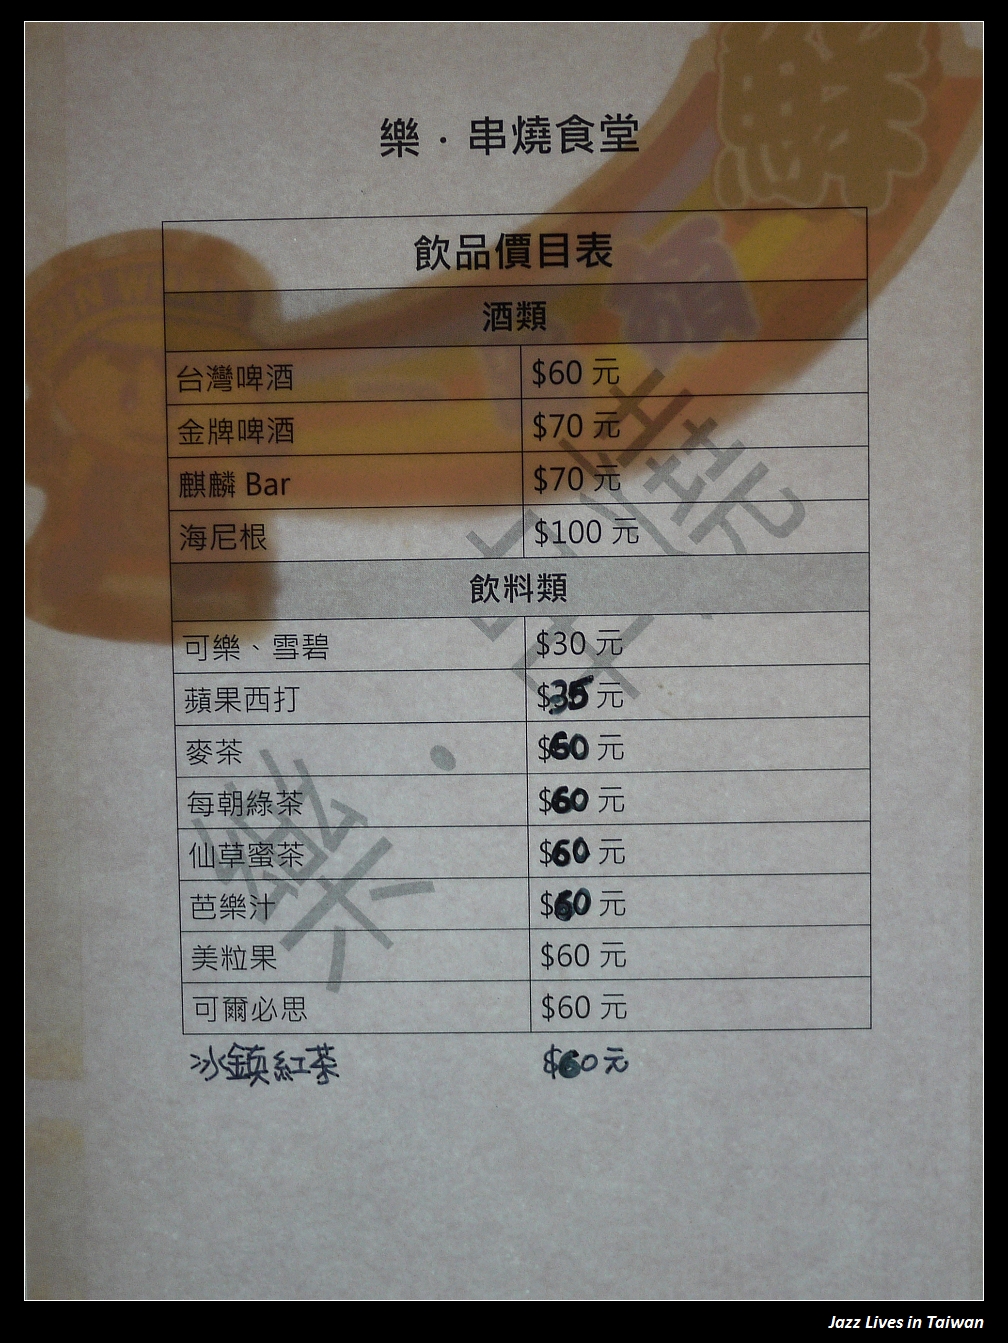 樂・串燒食堂
飲品價目表
酒類
台灣啤酒 $60 元
金牌啤酒 $70 元
麒麟 Bar $70 元
海尼根 $100 元
飲料類
可樂、雪碧 $30 元
蘋果西打 $35 元
麥茶 $60 元
每朝綠茶 $60 元
仙草蜜茶 $60 元
芭樂汁 $60 元
美粒果 $60 元
可爾必思 $60 元
冰鎮紅茶 $60元
樂・串燒
鮮
Jazz Lives in Taiwan